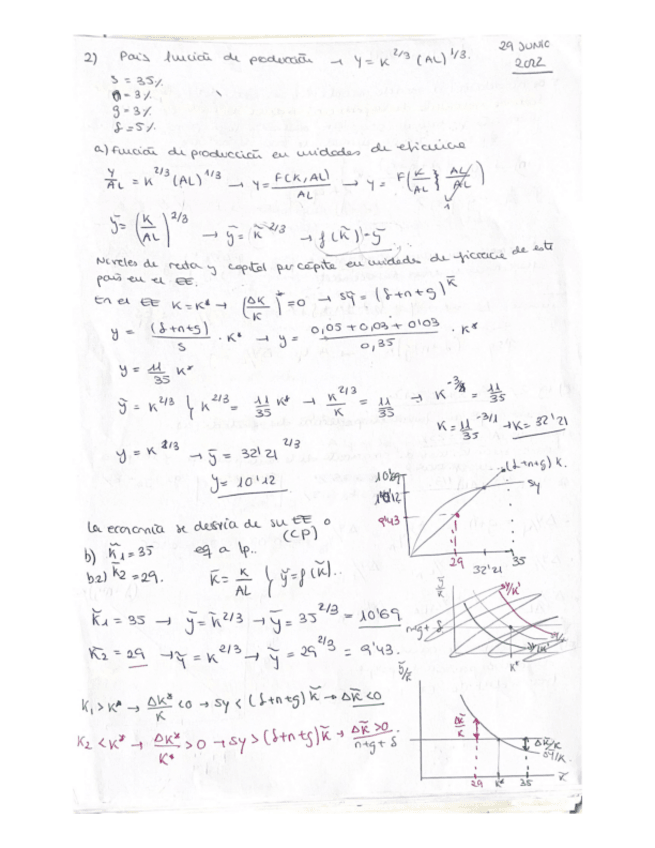 29 JUNIO
2022
2) País función de producción → Y = K^2/3 (AL)^1/3.
s = 35%
n = 3%
g = 3%
δ = 5%
a) Función de producción en unidades de eficiencia
Y/AL = K^2/3 (AL)^1/3 → y = F(K, AL)/AL → y = F(K/AL } AL/AL)
1
ỹ = (K/AL)^2/3 → ỹ = k̃^2/3 → f(k̃) = ỹ
Niveles de renta y capital per cápita en unidades de eficiencia de este
país en el EE.
En el EE K = K* → (ΔK/K)* = 0 → sy = (δ+n+g) k̃
y = (δ+n+g)/s · K* → y = 0,05 + 0,03 + 0'03/0,35 · K*
y = 11/35 K*
ỹ = K^2/3 } K^2/3 = 11/35 K* → K^2/3/K = 11/35 → K = 11/35
K = 11/35^-3/1 → K = 32'21
y = K^2/3 → ỹ = 32'21^2/3
y = 10'12
10'69
10'12
9'43
(δ+n+g) K.
sy
29
32'21
35
La economía se desvía de su EE o
(CP)
b) k̃1 = 35 eq a lp..
b.2) k̃2 = 29. k̃ = K/AL } ỹ = f(k̃)..
k̃1 = 35 → ỹ = k̃^2/3 → ỹ = 35^2/3 = 10'69
k̃2 = 29 → ỹ = K^2/3 → ỹ = 29^2/3 = 9'43.
ỹ/K
sy/K
n+g+δ
K*
K1 > K* → ΔK*/K < 0 → sy < (δ+n+g) k̃ → Δk̃ < 0
K2 < K* → ΔK*/K* > 0 → sy > (δ+n+g) k̃ → Δk̃ > 0
ỹ/K
Δk̃/K
n+g+δ
Δk̃/K
sy/K.
29
K*
35
k̃